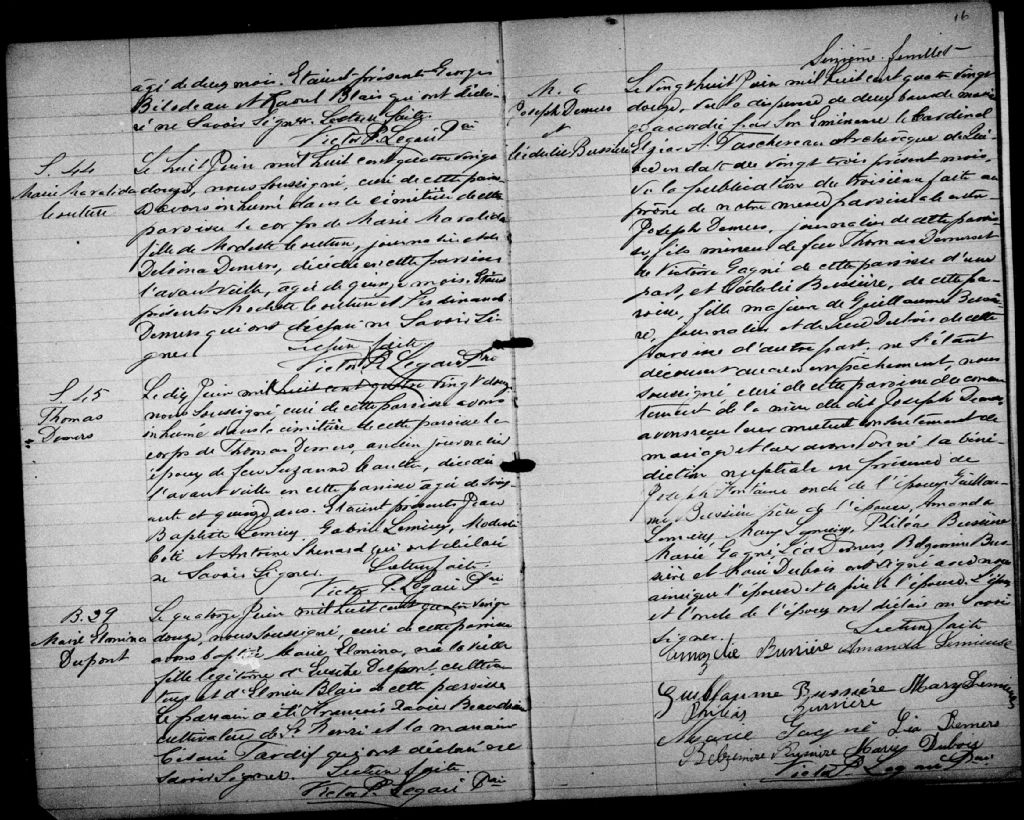 agé de deux mois. Etaient présents Georges
Bilodeau et Raoul Blais qui ont décla-
ré ne Savoir Signer. Lecture faite.
Victor P. Legaré Ptre
S. 44
Marie
Couture
Le huit Juin mil huit cent quatre vingt
douze, nous Soussigné, curé de cette parois-
se avons inhumé dans le cimetière de cette
paroisse le corps de Marie
fille de Modeste Couture, journalier et de
Delvina Demers, décédée en cette paroisse
l'avant veille, agée de quinze mois. Etaient
présents Modeste Couture et Ferdinand
Demers qui ont déclaré ne Savoir Si-
gner. Lecture faite.
Victor P. Legaré Ptre
S. 45
Thomas
Demers
Le dix Juin mil huit cent quatre vingt douze
nous Soussigné, curé de cette paroisse avons
inhumé dans le cimetière de cette paroisse le
corps de Thomas Demers, ancien journalier
époux de feu Suzanne décédé
l'avant veille en cette paroisse agé de Soix-
ante et quinze ans. Etaient présents Jean
Baptiste Lemieux, Gabriel Lemieux, Modeste
Coté et Antoine qui ont déclaré
ne Savoir Signer. Lecture faite.
Victor P. Legaré Ptre
B. 29
Marie Elmina
Dupont
Le quatorze Juin mil huit cent quatre vingt
douze, nous Soussigné, curé de cette paroisse
avons baptisé Marie Elmina, née la veille
fille légitime d'Eusèbe Dupont, cultiva-
teur et d' Blais de cette paroisse
Le parrain a été François Xavier Beaudoin
cultivateur de St Henri et la marraine
Césarie Tardif qui ont déclaré ne
Savoir Signer. Lecture faite.
Victor P. Legaré Ptre
16
Seizième feuillet
M. 6
Joseph Demers
et
Bussière
Le vingt huit Juin mil huit cent quatre vingt
douze, Vu la dispense de deux bans de maria-
ge accordée par Son Eminence le Cardinal
Elzéar A. Taschereau Archevêque de Qué-
bec en date du vingt trois présent mois,
Vu la publication du troisième faite au
prône de notre messe paroissiale entre
Joseph Demers, journalier de cette parois-
se, fils mineur de feu Thomas Demers et
de Victoire Gagné de cette paroisse d'une
part, et Bussière, de cette pa-
roisse, fille majeure de Guillaume Bussiè-
re, journalier et de Dubois de cette
paroisse d'autre part, ne S'étant
découvert aucun empêchement, nous
soussigné curé de cette paroisse du consen-
tement de la mère du dit Joseph Demers
avons reçu leur mutuel consentement de
mariage et leur avons donné la béné-
diction nuptiale en présence de
Joseph Fontaine oncle de l'époux, Guillau-
me Bussière père de l'épouse, Amanda
Lemieux, Mary Lemieux, Philéas Bussière
Marie Gagné, Léa Demers, Belzémire Bus-
sière et Marie Dubois ont Signé avec nous
ainsi que l'épouse et le père de l'épouse. L'époux
et l'oncle de l'époux ont déclaré ne Savoir
Signer. Lecture faite
Bussière Amanda Lemieux
Guillaume Bussière Mary Lemieux
Philéas Bussière
Marie Gagné Léa Demers
Belzémire Bussière Mary Dubois
Victor P. Legaré Ptre